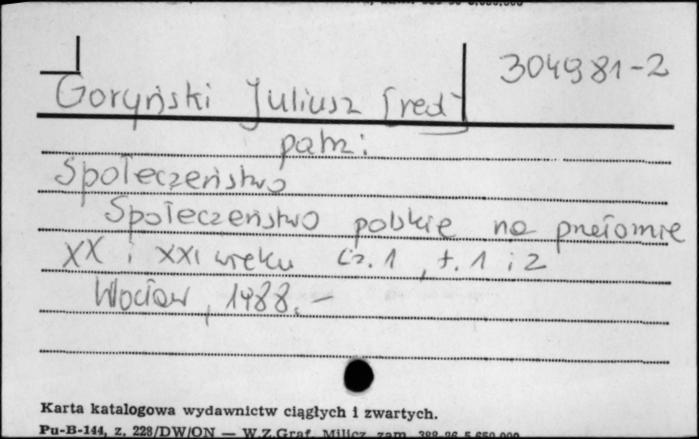 304981-2
Goryński Juliusz [red]
patrz:
Społeczeństwo
Społeczeństwo polskie na przełomie
XX i XXI wieku cz. 1, t. 1 i 2
Wrocław, 1988. –
Karta katalogowa wydawnictw ciągłych i zwartych.
Pu-B-144, z. 228/DW/ON — W.Z.Graf. Milicz, zam.